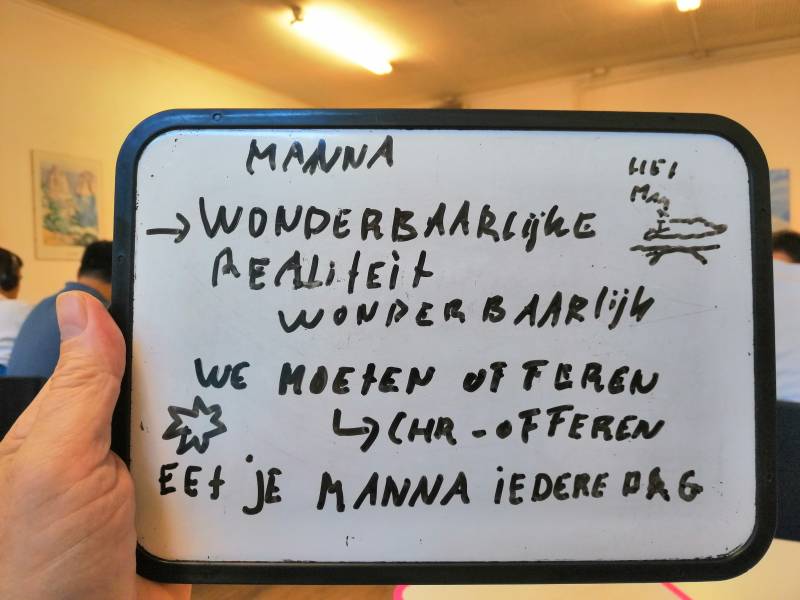 MANNA
HEI
MAN
→ WONDERBAARlijkE
REALitEit
WONDERBAARlijk
WE MOEtEN OFFEREN
↳ CHR - OFFEREN
EEt jE MANNA iEDERE DAG